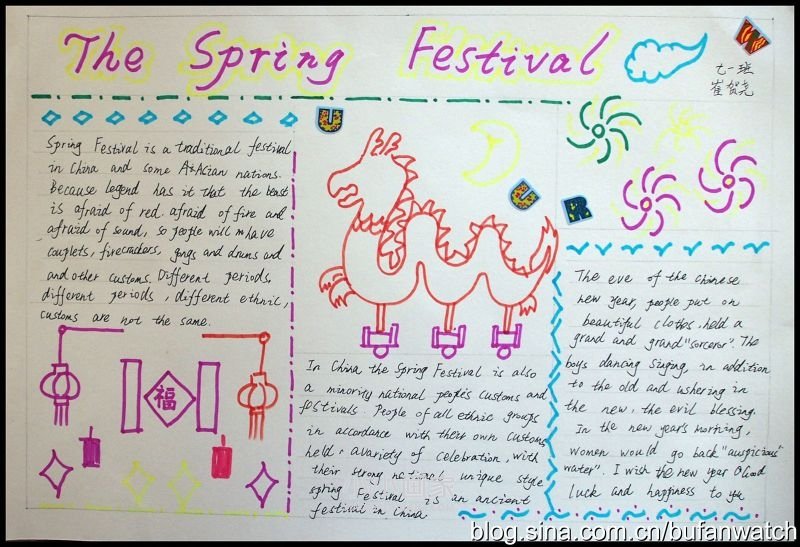 The Spring Festival
七一班
崔贺尧
Spring Festival is a traditional festival
in China and some Asian nations.
Because legend has it that the beast
is afraid of red. afraid of fire and
afraid of sound, so people will have
couplets, firecrackers, gongs and drums and
and other customs. Different periods,
different periods, different ethnic,
customs are not the same.
福
U
U
R
In China, the Spring Festival is also
a minority national people's customs and
festivals. People of all ethnic groups
in accordance with their own customs,
held a variety of celebration, with
their strong national unique style
spring Festival is an ancient
festival in China
The eve of the Chinese
new year, people put on
beautiful clothes, held a
grand and grand "sorcerer". The
boys dancing singing, in addition
to the old and ushering in
the new, the evil blessing.
In the new year's morning,
women would go back "auspicious
water". I wish the new year Good
luck and happiness to you
blog.sina.com.cn/bufanwatch